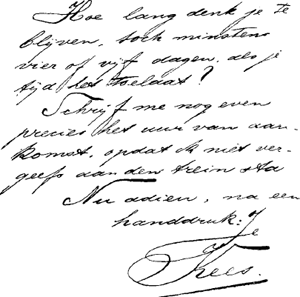 Hoe lang denk je te
blijven, toch minstens
vier of vijf dagen, als je
tijd het toelaat?
Schrijf me nog even
precies het uur van aan-
komst, opdat ik niet ver-
geefs aan den trein sta
Nu adieu, na een
handdruk: Je
Trees.